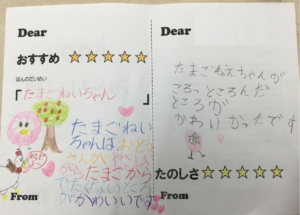 Dear
おすすめ ☆☆☆☆☆
ほんのだいめい
「たまごねいちゃん」
たまごねい
ちゃんは
から たまごから
でたくないところ
がかわいいです
From
Dear
たまごねえちゃんが
ころっところんだ
ところが
かわいかったです
たのしさ☆☆☆☆☆
From